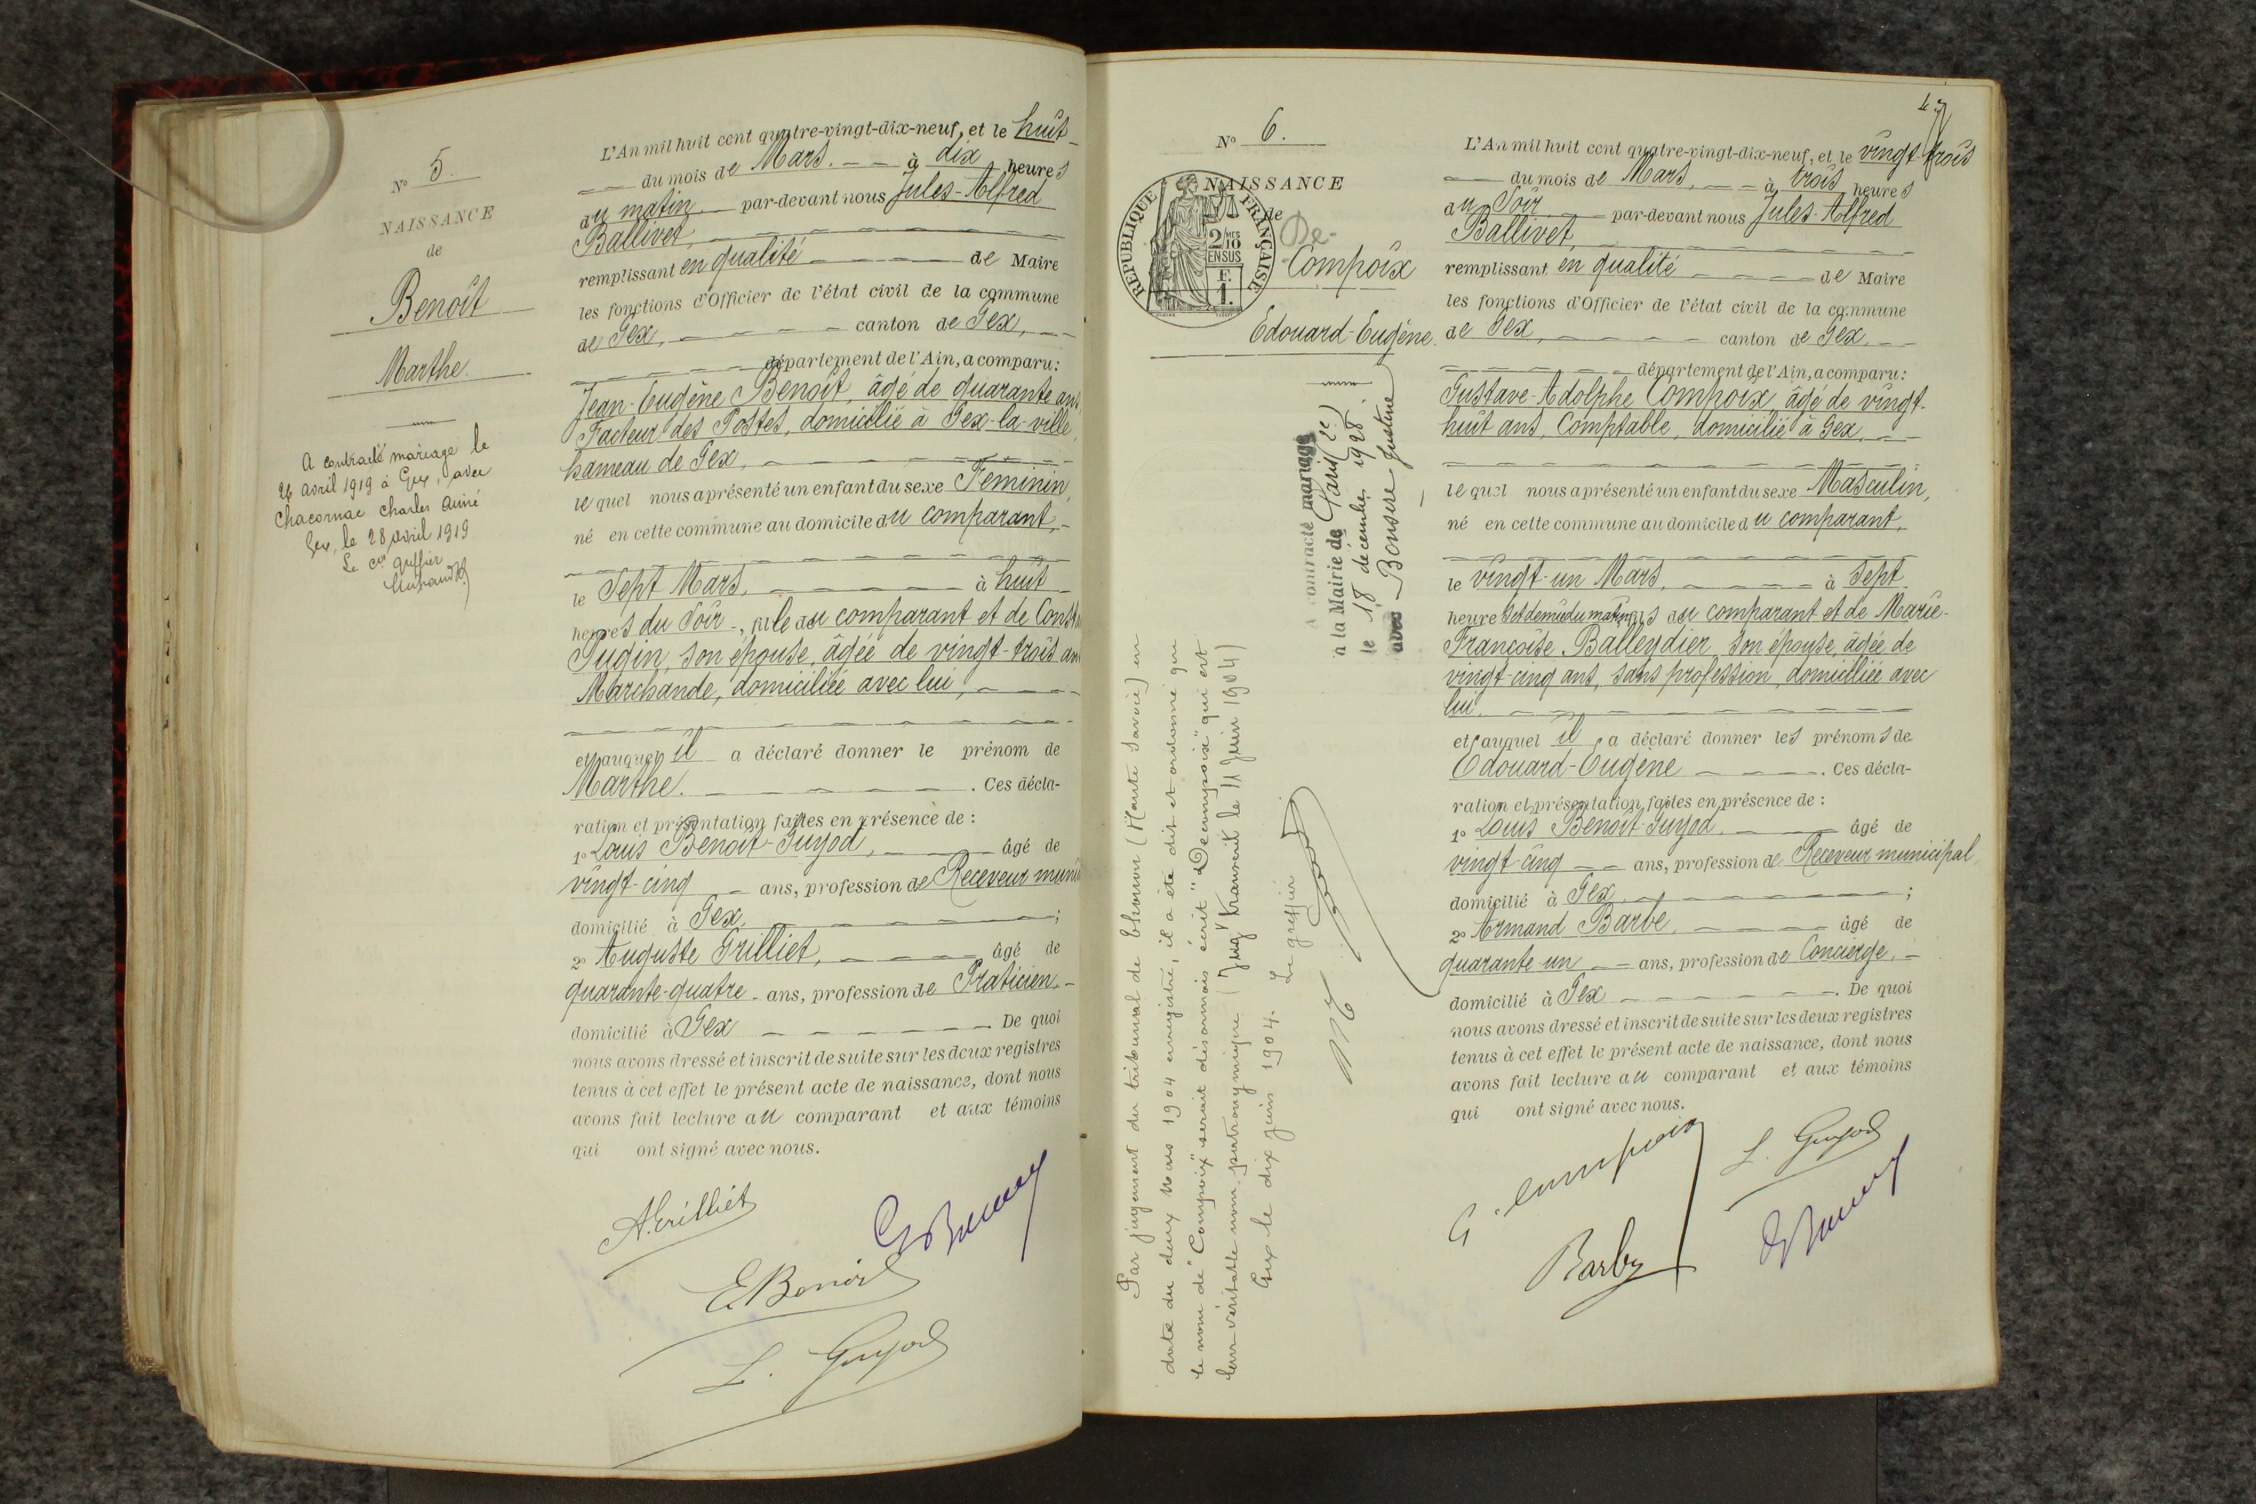 N° 5.
NAISSANCE
de
Benoît
Marthe
A contracté mariage le
26 avril 1919 à Gex, avec
Chacornac Charles Aimé
Gex, le 28 avril 1919
Le cis greffier
L'An mil huit cent quatre-vingt-dix-neuf, et le huit
du mois de Mars. à dix heures
du matin par-devant nous Jules-Alfred
Ballivet,
remplissant en qualité de Maire
les fonctions d'Officier de l'état civil de la commune
de Gex, canton de Gex,
département de l'Ain, a comparu:
Jean-Eugène Benoît, âgé de quarante ans,
Facteur des Postes, domicilié à Gex-la-ville,
hameau de Gex,
lequel nous a présenté un enfant du sexe Féminin,
né en cette commune au domicile du comparant,
le Sept Mars, à huit
heures du soir, fille du comparant et de
Pugin, son épouse, âgée de vingt-trois ans
Marchande, domiciliée avec lui,
et auquel il a déclaré donner le prénom de
Marthe. Ces décla-
ration et présentation faites en présence de :
1° Louis Benoit-Guyod, âgé de
vingt-cinq ans, profession de Receveur muni
domicilié à Gex, ;
2° Auguste Grilliet, âgé de
quarante-quatre ans, profession de Praticien,
domicilié à Gex De quoi
nous avons dressé et inscrit de suite sur les deux registres
tenus à cet effet le présent acte de naissance, dont nous
avons fait lecture au comparant et aux témoins
qui ont signé avec nous.
A. Grilliet
E. Benoit
L. Guyod
47
N° 6.
NAISSANCE
de
RÉPUBLIQUE FRANÇAISE
2/10 MES
EN SUS
F.
1.
De-
Compoix
Edouard-Eugène.
A contracté mariage
à la Mairie de Paris (2e)
le 18 décembre 1928.
avec Bonsere Justine
Par jugement du tribunal de Thonon (Haute Savoie) en
date du deux Mars 1904 enregistré, il a été dit et ordonné que
le nom de "Compoix" serait désormais écrit "Decompoix" qui est
leur véritable nom patronymique (Jugt transcrit le 11 Juin 1904)
Gex le dix juin 1904. Le greffier
L'An mil huit cent quatre-vingt-dix-neuf, et le vingt-trois
du mois de Mars, à trois heures
du Soir par-devant nous Jules-Alfred
Ballivet,
remplissant en qualité de Maire
les fonctions d'Officier de l'état civil de la commune
de Gex, canton de Gex
département de l'Ain, a comparu:
Gustave-Adolphe Compoix âgé de vingt-
huit ans, Comptable, domicilié à Gex,
lequel nous a présenté un enfant du sexe Masculin,
né en cette commune au domicile du comparant,
le vingt-un Mars, à sept
heures et demie du matin, fils du comparant et de Marie-
Françoise Balleydier, son épouse, âgée de
vingt-cinq ans, sans profession, domiciliée avec
lui.
et auquel il a déclaré donner les prénoms de
Edouard-Eugène. Ces décla-
ration et présentation faites en présence de :
1° Louis Benoit-Guyod, âgé de
vingt-cinq ans, profession de Receveur municipal
domicilié à Gex ;
2° Armand Barbe, âgé de
quarante-un ans, profession de Concierge,
domicilié à Gex. De quoi
nous avons dressé et inscrit de suite sur les deux registres
tenus à cet effet le présent acte de naissance, dont nous
avons fait lecture au comparant et aux témoins
qui ont signé avec nous.
G. Compoix
L. Guyod